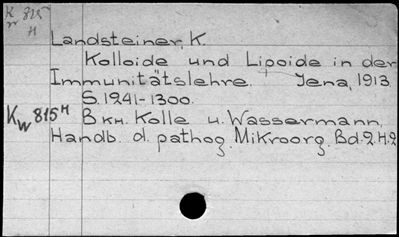 K
w 815
H
Landsteiner, K.
Kolloide und Lipoide in der
Immunitätslehre. Jena, 1913.
S. 1241-1300.
Kw 815H В кн. Kolle u. Wassermann,
Handb. d. pathog. Mikroorg. Bd. 2. H. 2